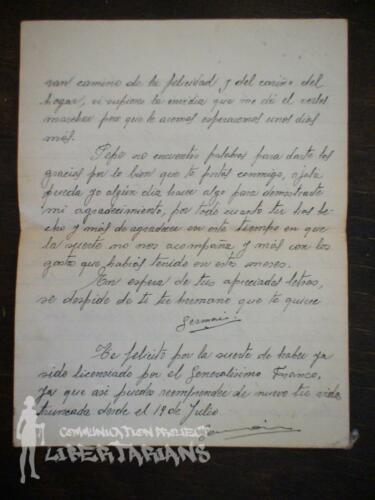 van camino de la felicidad y del cariño del
hogar, si supieras la envidia que me dá el verlos
marchar pero que le aremos esperaremos unos dias
más.
Pepe no encuentro palabras para darte las
gracias por lo bien que te portas conmigo, ojala
pueda yo algún dia hacer algo para demostrarte
mi agradecimiento, por todo cuanto tu has he-
cho y más de agradecer en este tiempo en que
la suerte no nos acompaña y más con los
gastos que habeis tenido en estos meses.
En espera de tus apreciadas letras,
se despide de ti tu hermano que te quiere
Te felicito por la suerte de haber ya
sido licenciado por el Generalisimo Franco,
ya que asi puedes reemprender de nuevo tu vida
truncada desde el 18 de Julio
COMMUNICATION PROJECT
LIBERTARIANS